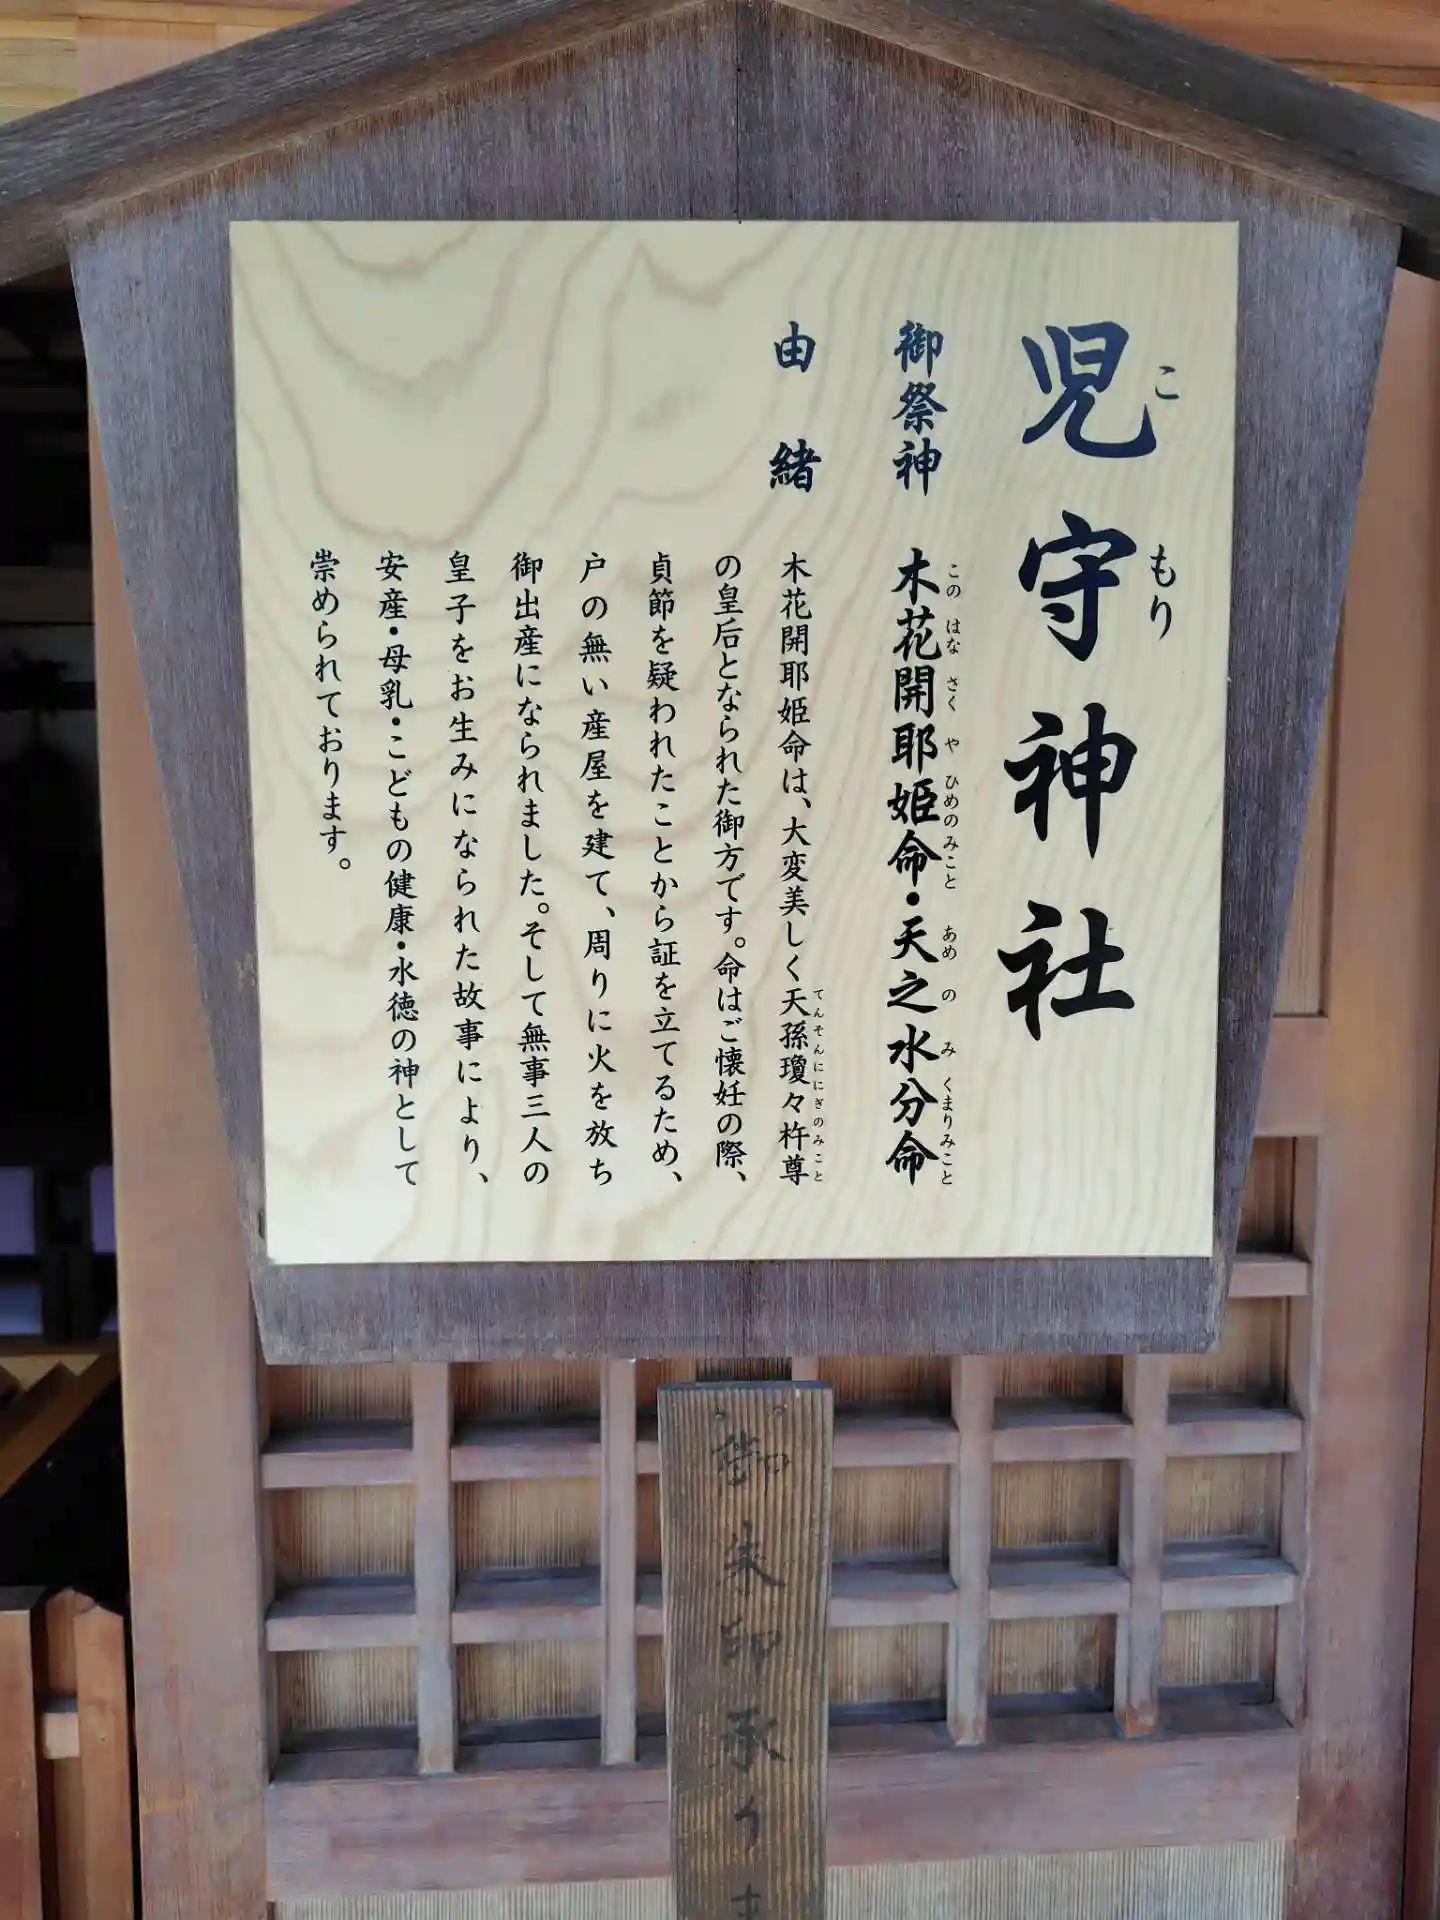 児守神社
こ もり
御祭神 木花開耶姫命・天之水分命
このはなさくやひめのみこと あめのみくまりみこと
由緒
木花開耶姫命は、大変美しく天孫瓊々杵尊
てんそんににぎのみこと
の皇后となられた御方です。命はご懐妊の際、
貞節を疑われたことから証を立てるため、
戸の無い産屋を建て、周りに火を放ち
御出産になられました。そして無事三人の
皇子をお生みになられた故事により、
安産・母乳・こどもの健康・水徳の神として
崇められております。
御朱印承りま